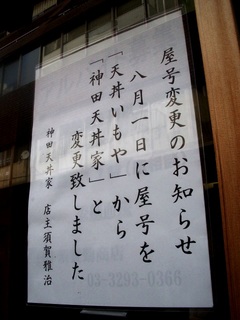 屋号変更のお知らせ
八月一日に屋号を
「天丼いもや」から
「神田天丼家」と
変更致しました
神田天丼家 店主須賀雅治
03-3293-0366